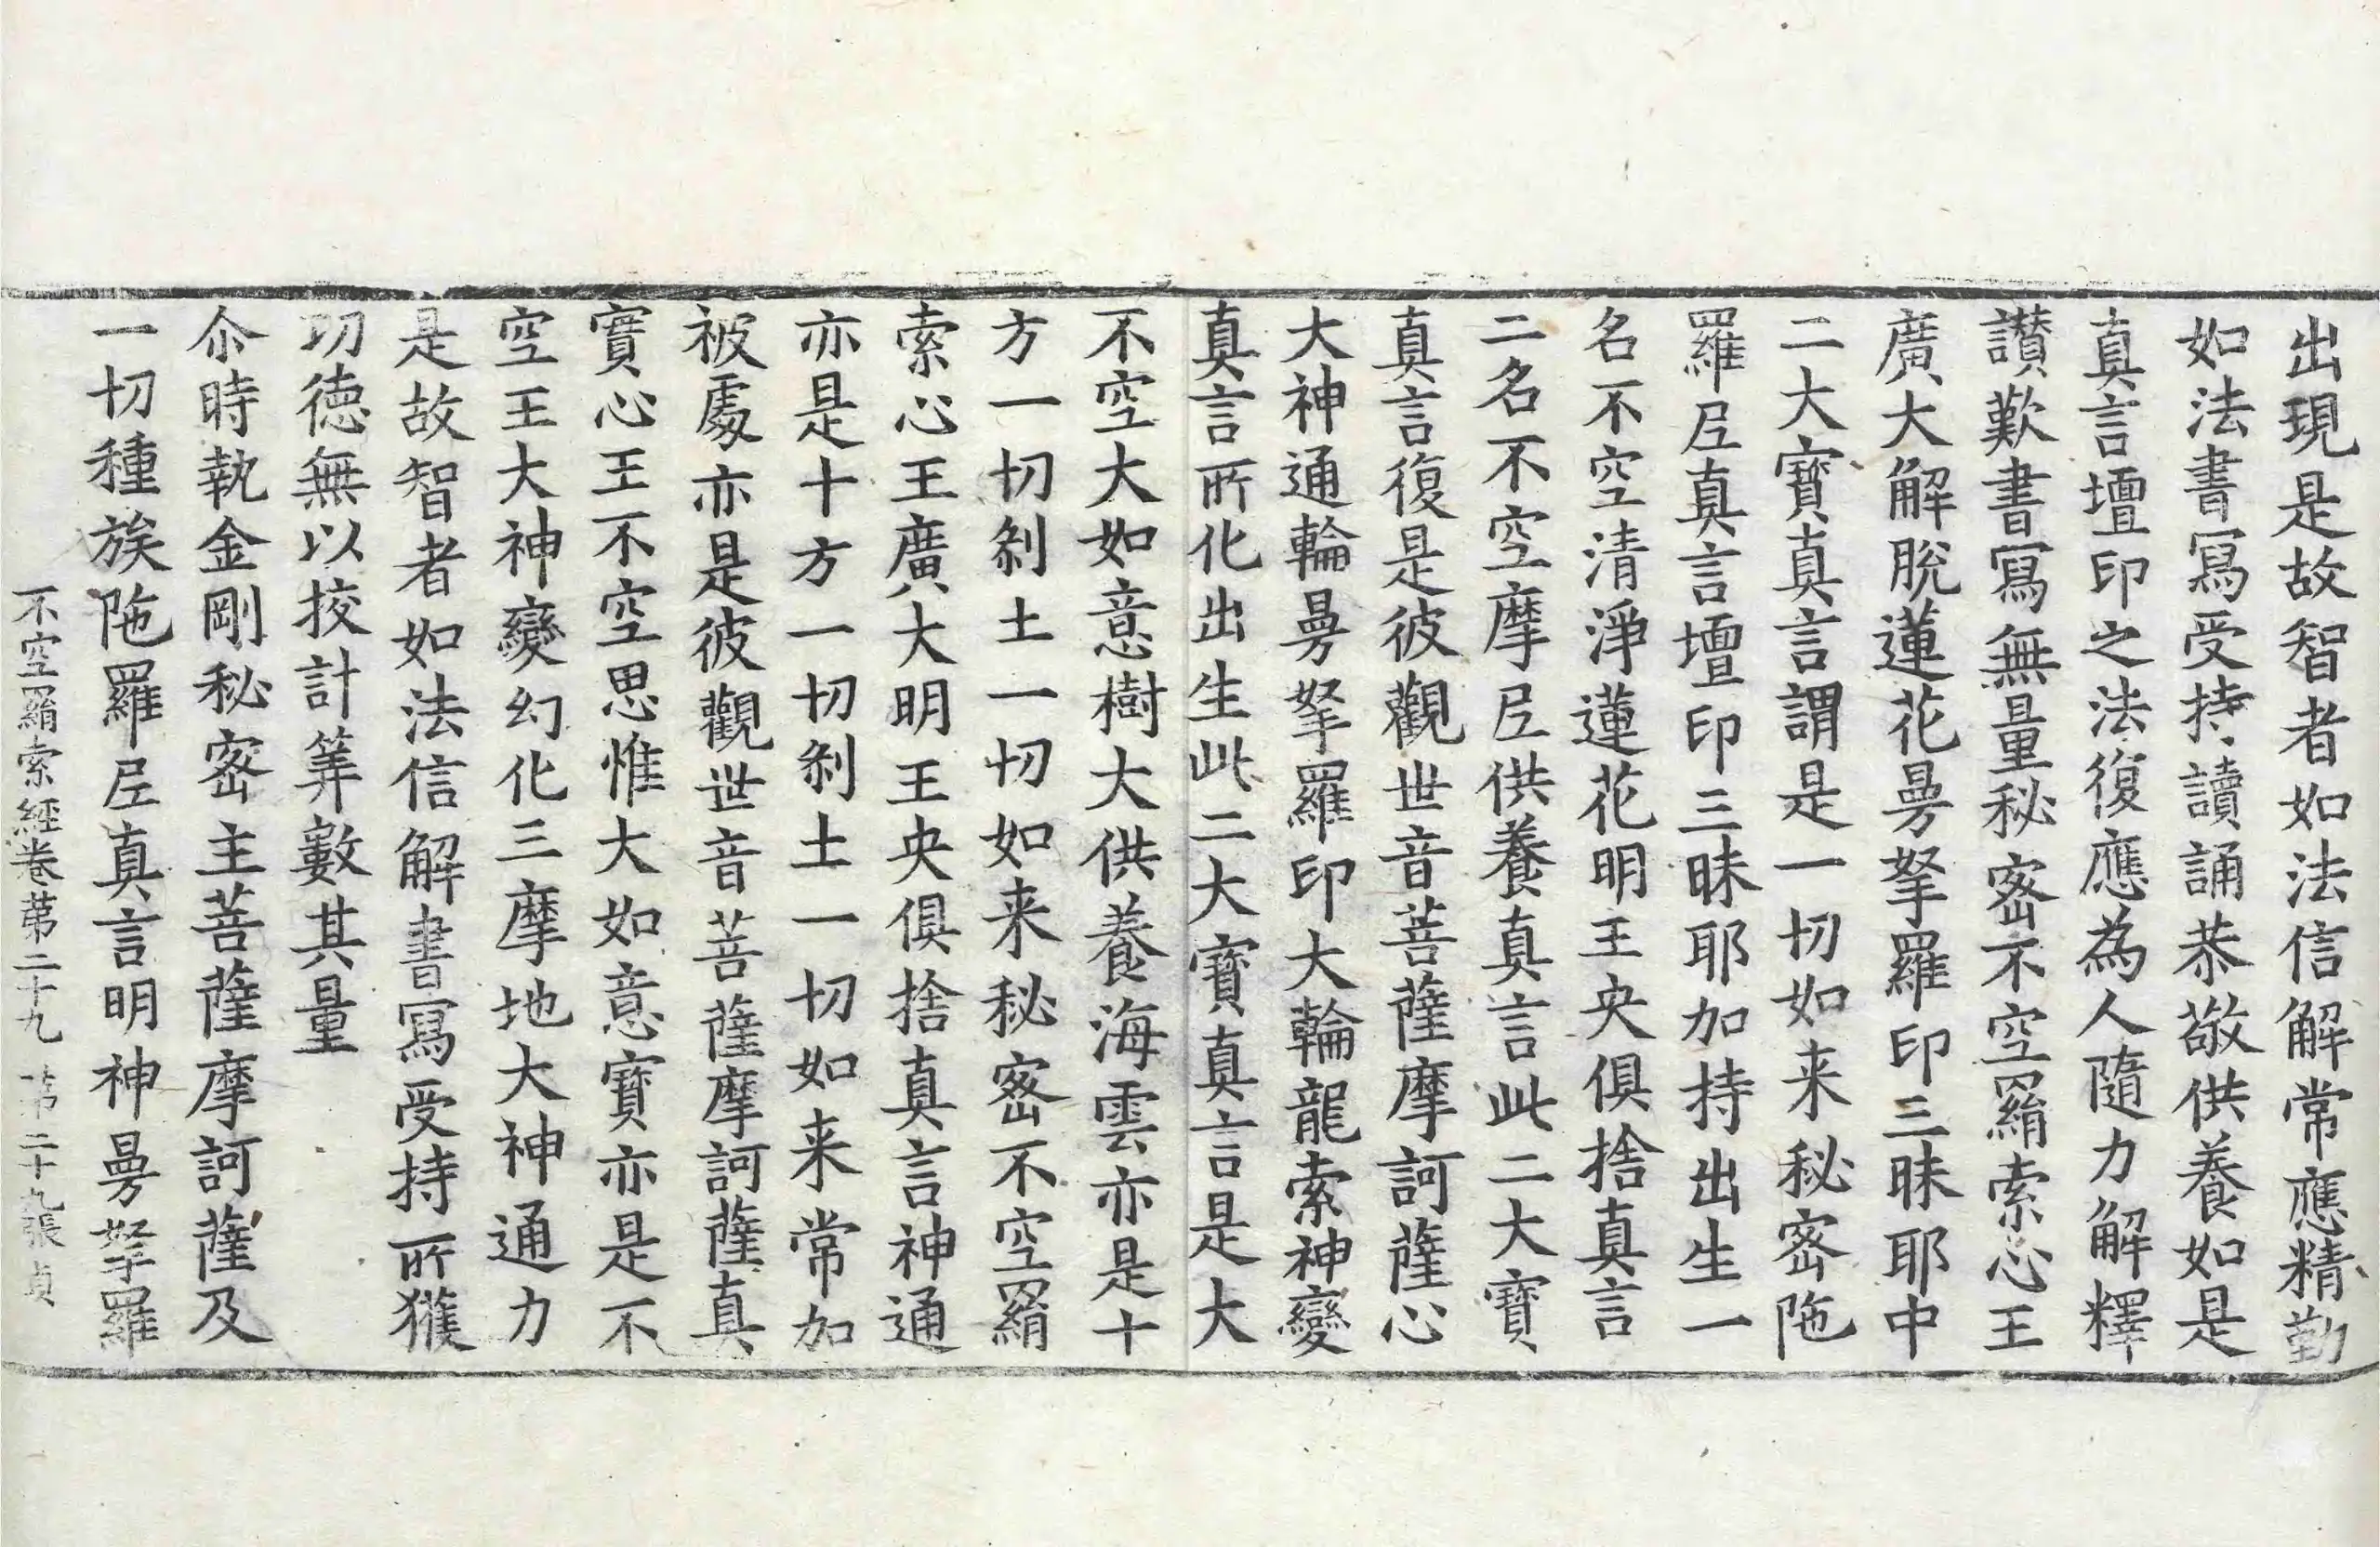 出現是故智者如法信解常應精勤
如法書寫受持讀誦恭敬供養如是
真言壇印之法復應為人隨力解釋
讃歎書寫無量秘密不空羂索心王
廣大解脫蓮花曼拏羅印三昧耶中
二大寳真言謂是一切如来秘密陁
羅𡰱真言壇印三昧耶加持出生一
名不空清淨蓮花明王央俱捨真言
二名不空摩𡰱供養真言此二大寳
真言復是彼觀世音菩薩摩訶薩心
大神通輪曼拏羅印大輪龍索神變
真言所化出生此二大寳真言是大
不空大如意樹大供養海雲亦是十
方一切剎土一切如来秘密不空羂
索心王廣大明王央俱捨真言神通
亦是十方一切剎土一切如来常加
被處亦是彼觀世音菩薩摩訶薩真
實心王不空思惟大如意寳亦是不
空王大神變幻化三摩地大神通力
是故智者如法信解書寫受持所獲
功德無以挍計筭數其量
尒時執金剛秘密主菩薩摩訶薩及
一切種族陁羅𡰱真言明神曼拏羅
不空羂索經卷苐二十九 苐二十九張 貞